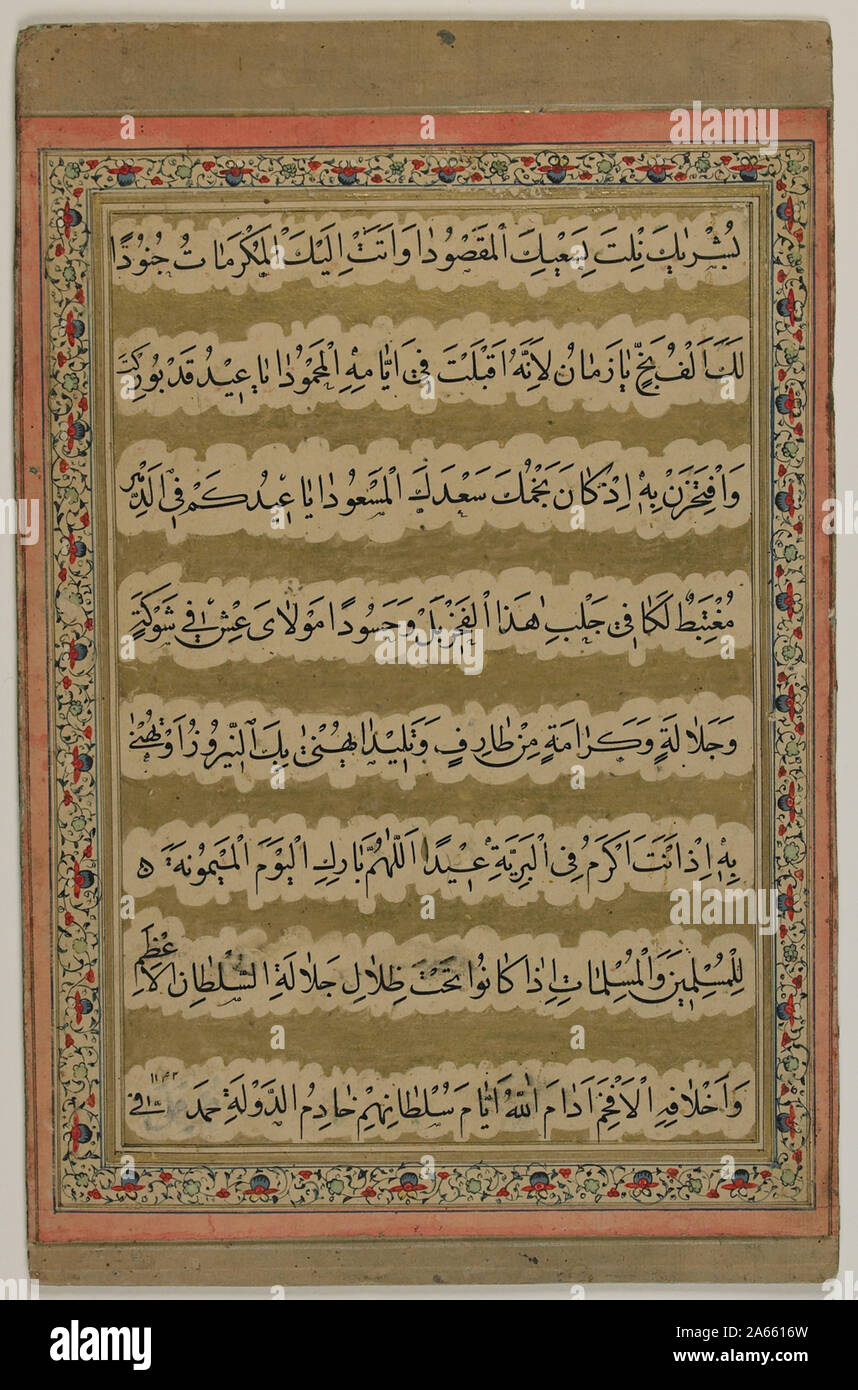 بُشْرىٰيكَ نِلتَ بِسَعْيِكَ المَقصُودٰا وَاَتَتْ اِلَيْكَ المَكْرَمٰاتُ جُنُودًا
لَكَ اَلْفُ بَخٍّ يٰا زَمٰانُ لِاَنَّهُ اَقْبَلَتْ فِي اَيّٰامِهِ المَحْمُودٰا يٰا عِيْدُ قَدْ بُورِكْتَ
وَافْتَخِرَنْ بِهِ اِذْ كٰانَ نَجْمُكَ سَعْدَكَ المَسْعُودٰا يٰا عِيْدُ كَمْ فِي الدَّهْرِ
مُغْتَبِطٌ لَكَ فِي جَلْبِ هٰذَا الفَخْرِ بَلْ وَحَسُودًا مَوْلٰايَ عِشْ فِي شَوْكَةٍ
وَجَلٰالَةٍ وَكَرٰامَةٍ مِنْ طٰارِفٍ وَتَلِيْدٰا يُهَنّىٰ بِكَ النَّيْرُوزُ اَوْ تُهَنّىٰ
بِهِ اِذْ اَنْتَ اَكْرَمُ فِي البَرِيَّةِ عِيْدًا اَللّٰهُمَّ بٰارِكِ اليَوْمَ المَيْمُونَةَ ۵
لِلْمُسْلِمِيْنَ وَالمُسْلِمٰاتِ اِذٰا كٰانُوا تَحْتَ ظِلٰالِ جَلٰالَةِ السُّلْطٰانِ الاَعْظَمِ
وَاَخْلٰافِهِ الاَفْخَمِ اَدٰامَ اللهُ اَيّٰامَ سُلْطٰانِهِمْ خٰادِمُ الدَّوْلَةِ
١١٤٢
alamy
Image ID: 2A6616W
www.alamy.com